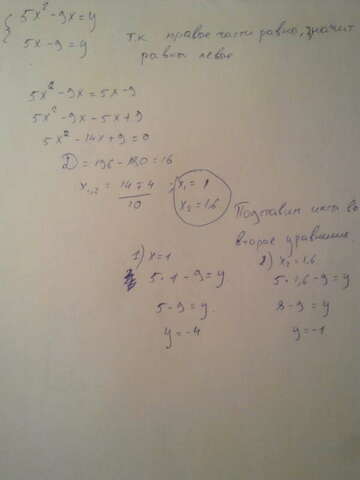 5x² - 9x = y
5x - 9 = y
т.к. правые части равны, значит
равны левые
5x² - 9x = 5x - 9
5x² - 9x - 5x + 9
5x² - 14x + 9 = 0
D = 196 - 180 = 16
x₁,₂ = (14 ± 4)/10 ; x₁ = 1
x₂ = 1,6
Подставим иксы во
второе уравнение
1) x = 1
5 · 1 - 9 = y
5 - 9 = y
y = -4
2) x₂ = 1,6
5 · 1,6 - 9 = y
8 - 9 = y
y = -1